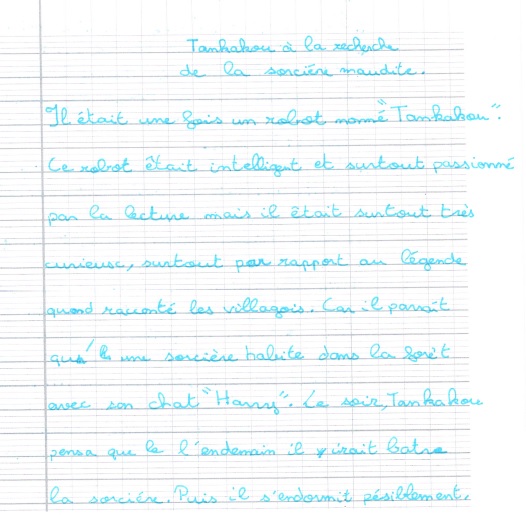 Tankakou à la recherche
de la sorcière maudite.
Il était une fois un robot nomé "Tankakou".
Ce robot était intelligut et surtout passionné
par la lecture mais il était surtout très
curieuse, surtout par rapport au légende
quand raconté les villagois. Car il paraît
qu' une sorcière habite dans la forêt
avec son chat "Harry". Le soir, Tankakou
pensa que le l'endemain il irait batre
la sorcière. Puis il s'endormit pésiblement.